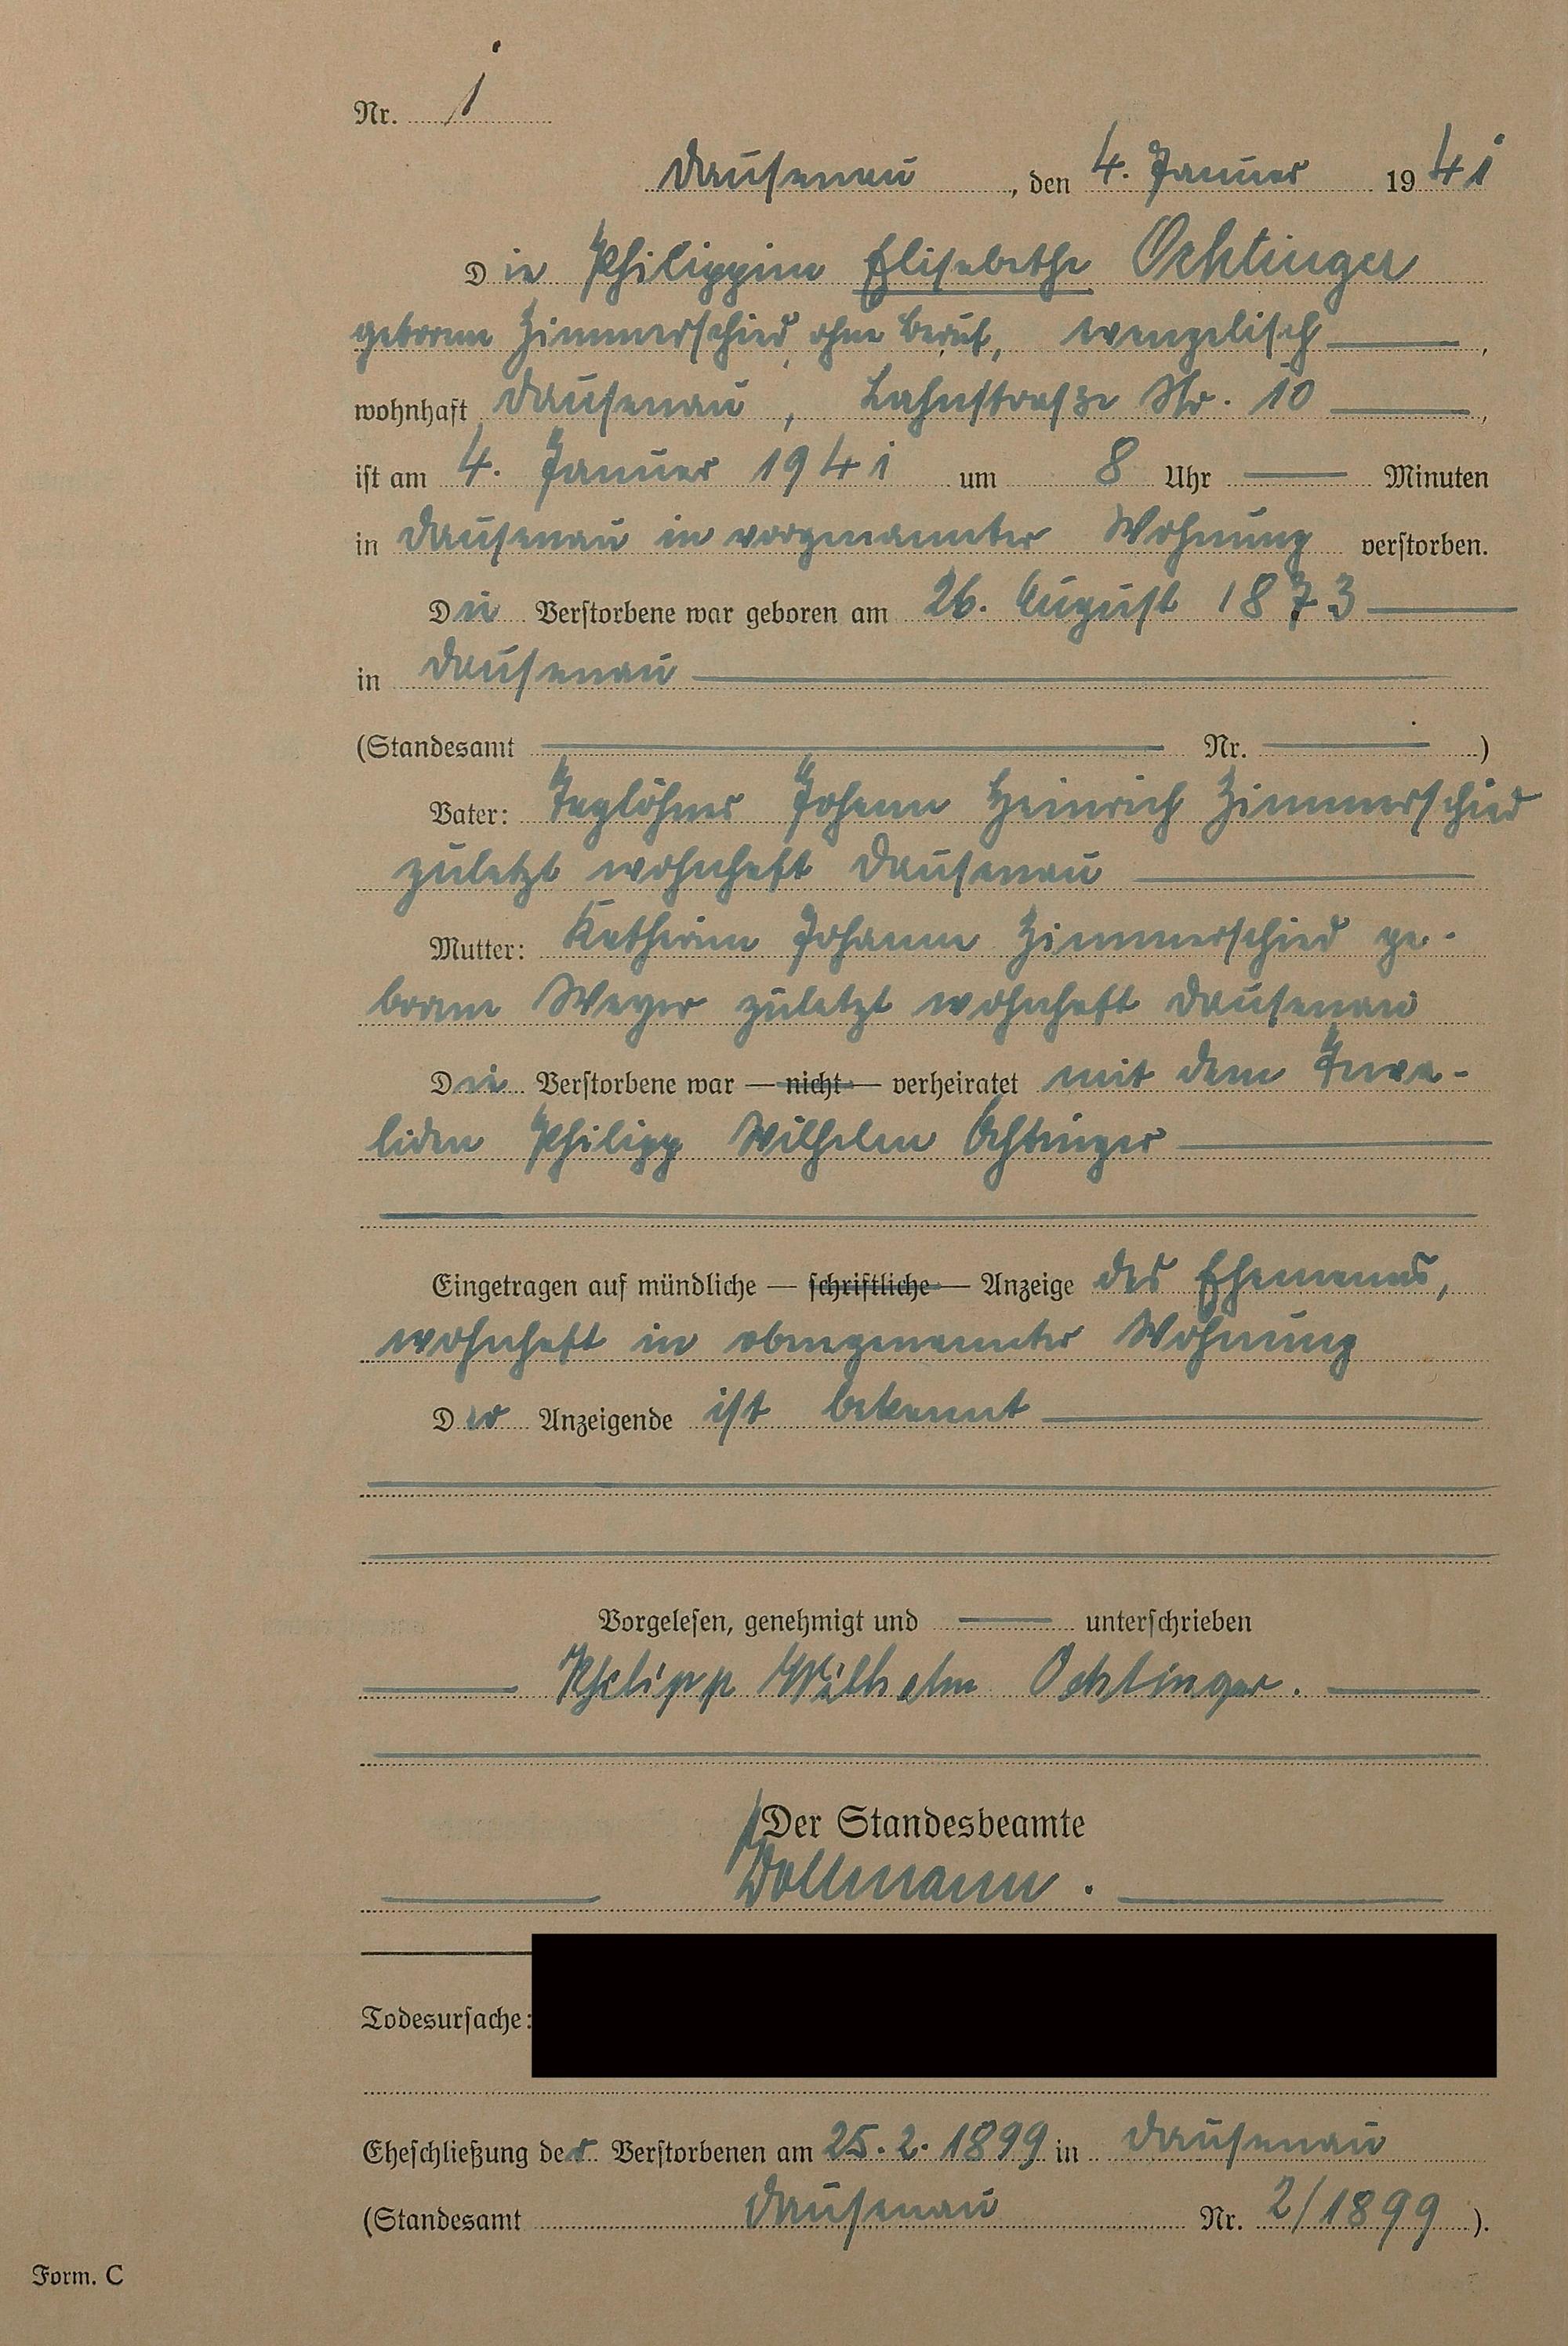 Nr. 1
Dausenau, den 4. Januar 1941
Die Philippine Elisabethe Ochtinger
geborene Zimmerschied, ohne Beruf, evangelisch —,
wohnhaft Dausenau, Lahnstraße Nr. 10 —,
ist am 4. Januar 1941 um 8 Uhr — Minuten
in Dausenau in vorgenannter Wohnung verstorben.
Die Verstorbene war geboren am 26. August 1873 —
in Dausenau —
(Standesamt — Nr. —)
Vater: Taglöhner Johann Heinrich Zimmerschied
zuletzt wohnhaft Dausenau —
Mutter: Katharine Johanne Zimmerschied ge-
borene Weyer zuletzt wohnhaft Dausenau
Die Verstorbene war — nicht — verheiratet mit dem Inva-
liden Philipp Wilhelm Ochtinger —
Eingetragen auf mündliche — schriftliche — Anzeige des Ehemanns,
wohnhaft in obengenannter Wohnung
Der Anzeigende ist bekannt —
Vorgelesen, genehmigt und — unterschrieben
— Philipp Wilhelm Ochtinger. —
Der Standesbeamte
— Dollmann. —
Todesursache:
Eheschließung der Verstorbenen am 25.2.1899 in Dausenau
(Standesamt Dausenau Nr. 2/1899).
Form. C